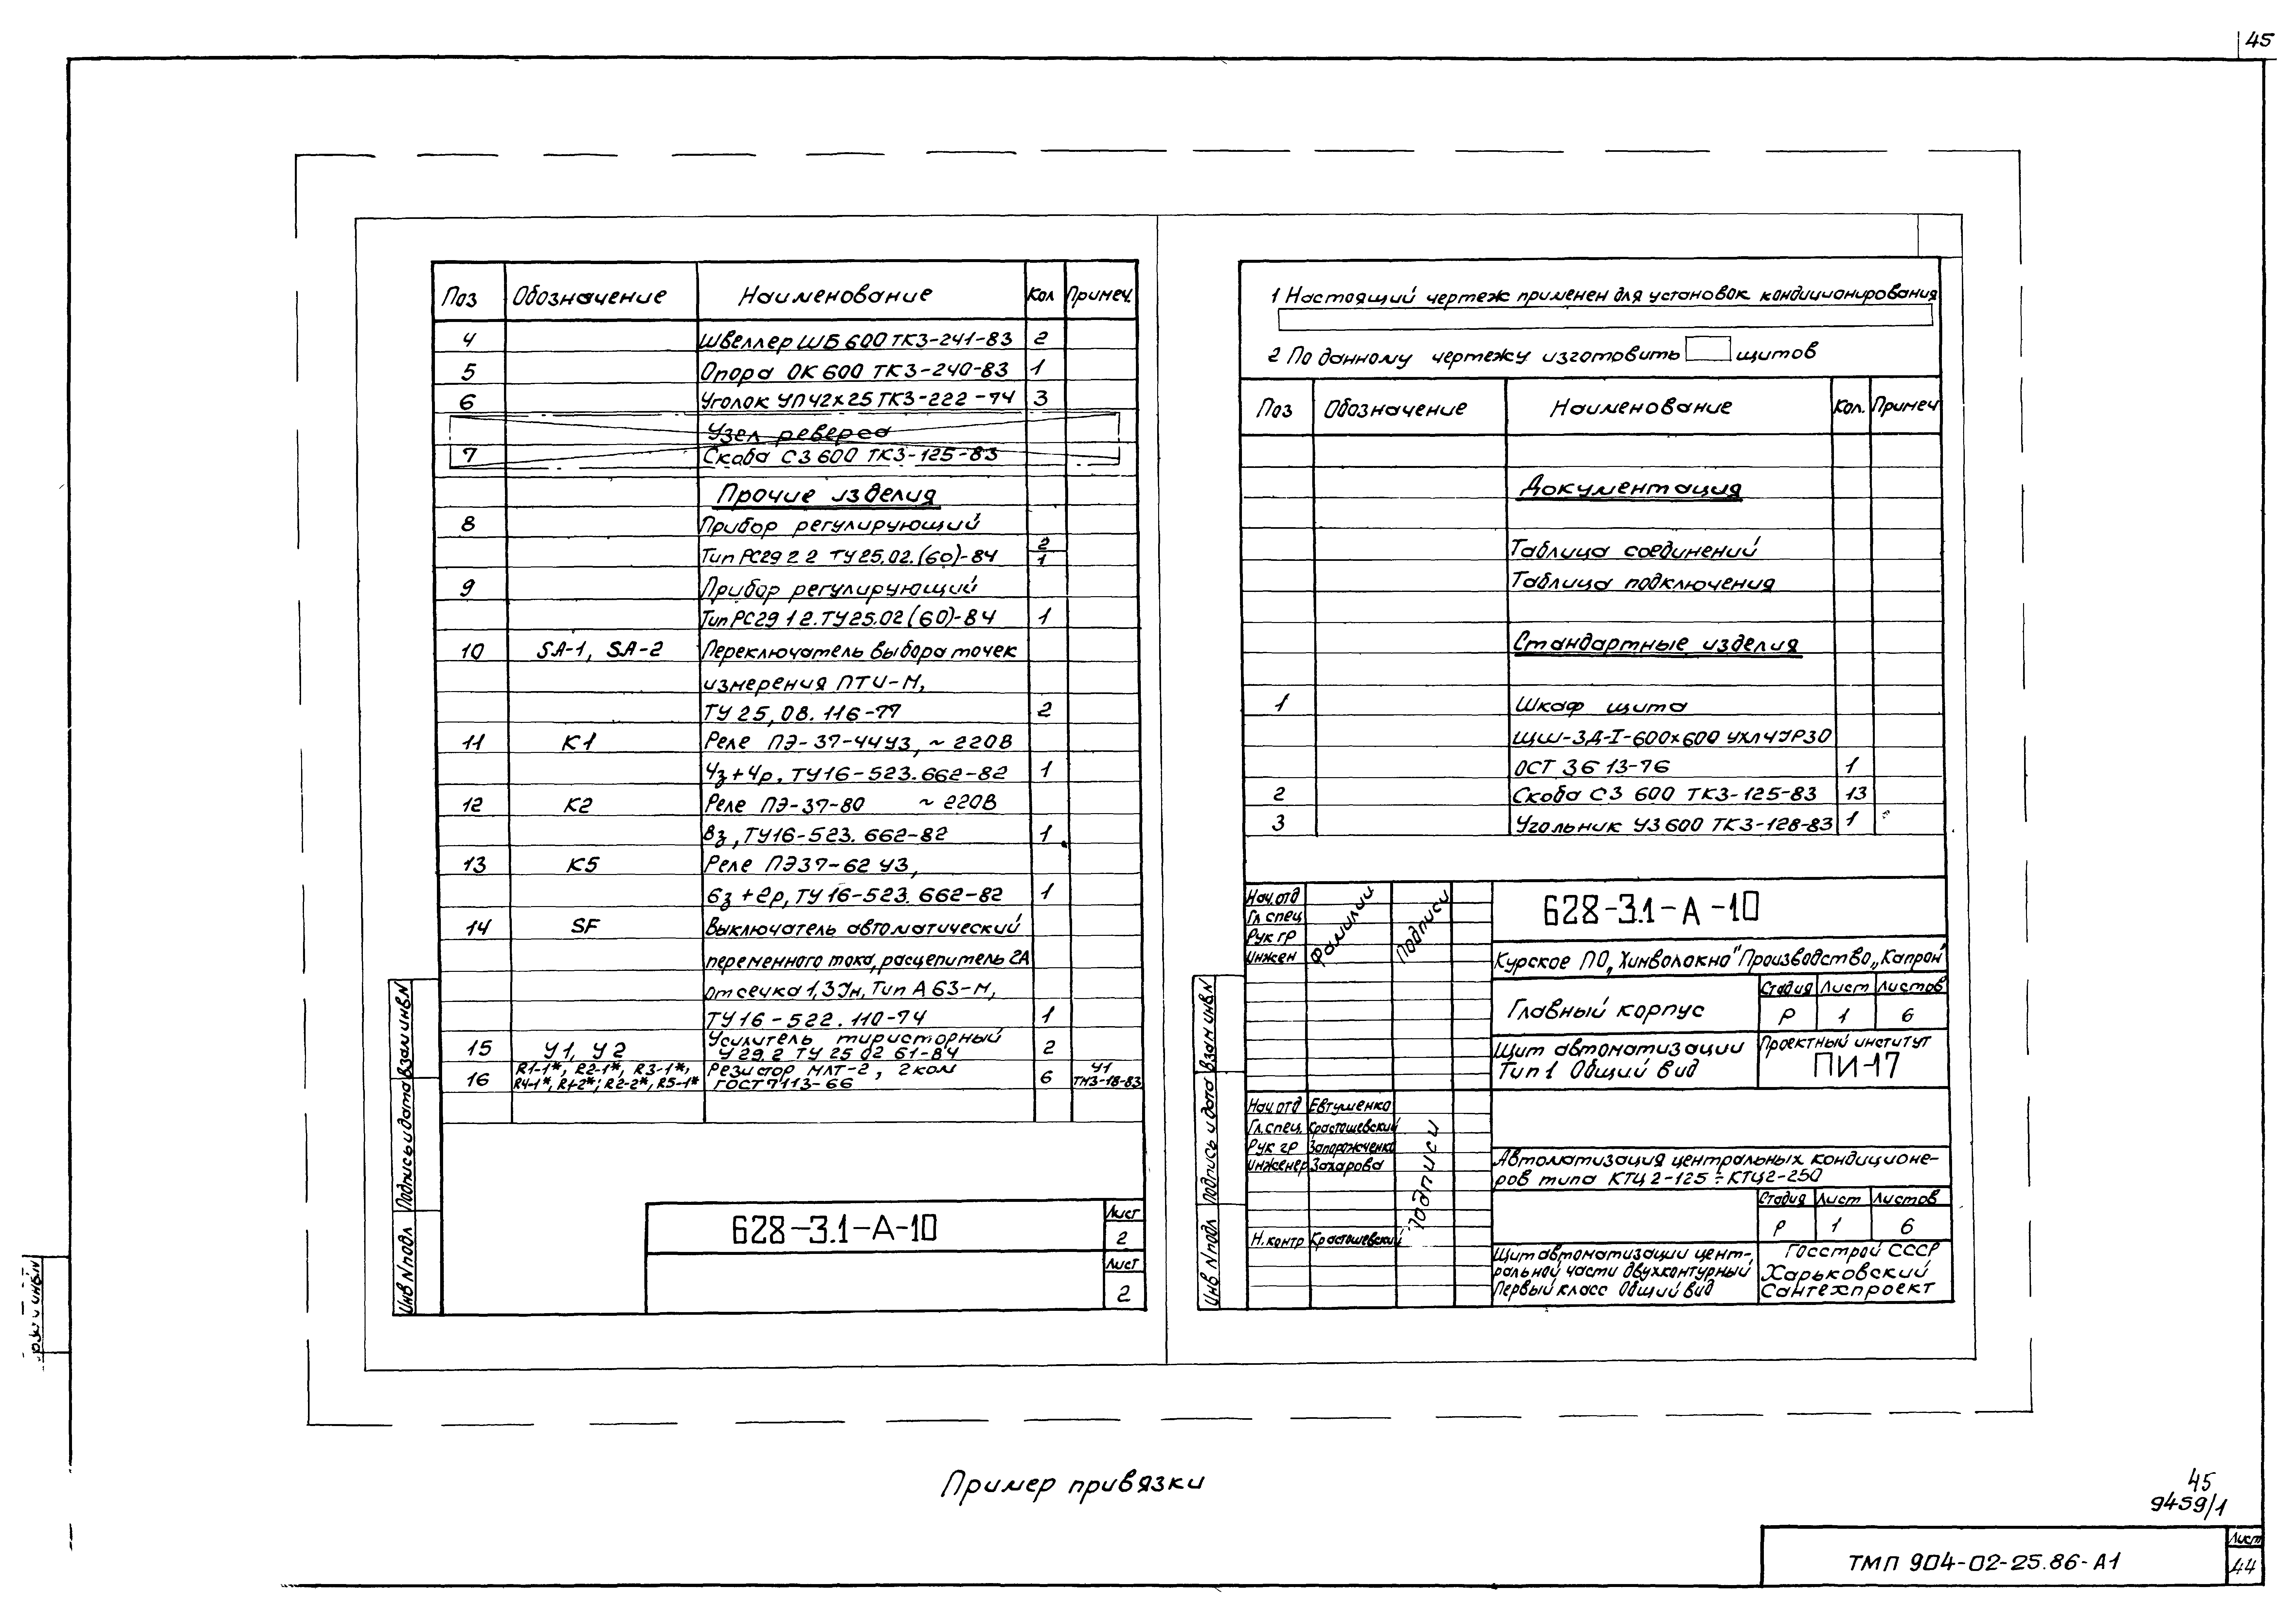 45
Поз Обозначение Наименование Кол Примеч.
4 Швеллер ШБ 600 ТК3-241-83 2
5 Опора ОК 600 ТК3-240-83 1
6 Уголок УП42х25 ТК3-222-74 3
Узел реверса
7 Скоба СЗ 600 ТК3-125-83
Прочие изделия
8 Прибор регулирующий
Тип РС29 2 2 ТУ25.02.(60)-84 2/1
9 Прибор регулирующий
Тип РС29 1 2. ТУ25.02(60)-84 1
10 SA-1, SA-2 Переключатель выбора точек
измерения ПТИ-М,
ТУ 25,08. 116-77 2
11 К1 Реле ПЭ-37-44У3, ~ 220В
4з+4р, ТУ16-523.662-82 1
12 К2 Реле ПЭ-37-80 ~ 220В
8з, ТУ16-523. 662-82 1
13 К5 Реле ПЭ37-62 У3,
6з +2р, ТУ 16-523. 662-82 1
14 SF Выключатель автоматический
переменного тока, расцепитель 2А
отсечка 1,3 Iн, Тип А 63-М,
ТУ16-522.110-74 1
15 У1, У2 Усилитель тиристорный
У 29.2 ТУ 25 02 61-84 2
16 R1-1*, R2-1*, R3-1*, Резистор МЛТ-2, 2ком
R4-1*, R1-2*; R2-2*, R5-1* ГОСТ 7113-66 6 У1
ТМ3-18-83
Инв N подл Подпись и дата Взам инв N
628-3.1-А-10
Лист
2
Лист
2
1 Настоящий чертеж применен для установок кондиционирования
2 По данному чертежу изготовить щитов
Поз Обозначение Наименование Кол. Примеч
Документация
Таблица соединений
Таблица подключения
Стандартные изделия
1 Шкаф щита
ЩШ-3Д-I-600х600 УХЛ4 IР30
ОСТ 36 13-76 1
2 Скоба СЗ 600 ТК3-125-83 13
3 Угольник У3 600 ТК3-128-83 1
Нач.отд
Гл спец
Рук гр
Инжен
Фамилии
Подписи
628-3.1-А-10
Курское ПО „Химволокно" Производство „Капрон"
Главный корпус
Стадия Лист Листов
Р 1 6
Щит автоматизации
Тип 1 Общий вид
Проектный институт
ПИ-17
Нач.отд Евтушенко
Гл.спец. Красташевский
Рук гр Запорожченко
Инженер Захарова
Н.контр Красташевский
Подписи
Автоматизация центральных кондиционе-
ров типа КТЦ 2-125 ÷ КТЦ2-250
Стадия Лист Листов
Р 1 6
Щит автоматизации цент-
ральной части двухконтурный
Первый класс Общий вид
Госстрой СССР
Харьковский
Сантехпроект
Инв N подл Подпись и дата Взам инв N
Пример привязки
45
9459/1
ТМП 904-02-25.86-А1
Лист
44